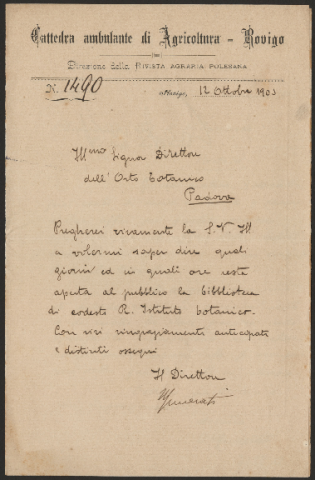 Cattedra ambulante di Agricoltura - Rovigo
Direzione della RIVISTA AGRARIA POLESANA
N. 1490 Rovigo, 12 Ottobre 1903
Ill.mo Signor Direttore
dell'Orto botanico
Padova
Pregherei vivamente la S. V. Ill
a volermi saper dire quali
giorni ed in quali ore resta
aperta al pubblico la biblioteca
di codesto R. Istituto botanico.
Con vivi ringraziamenti anticipati
e distinti ossequi
Il Direttore